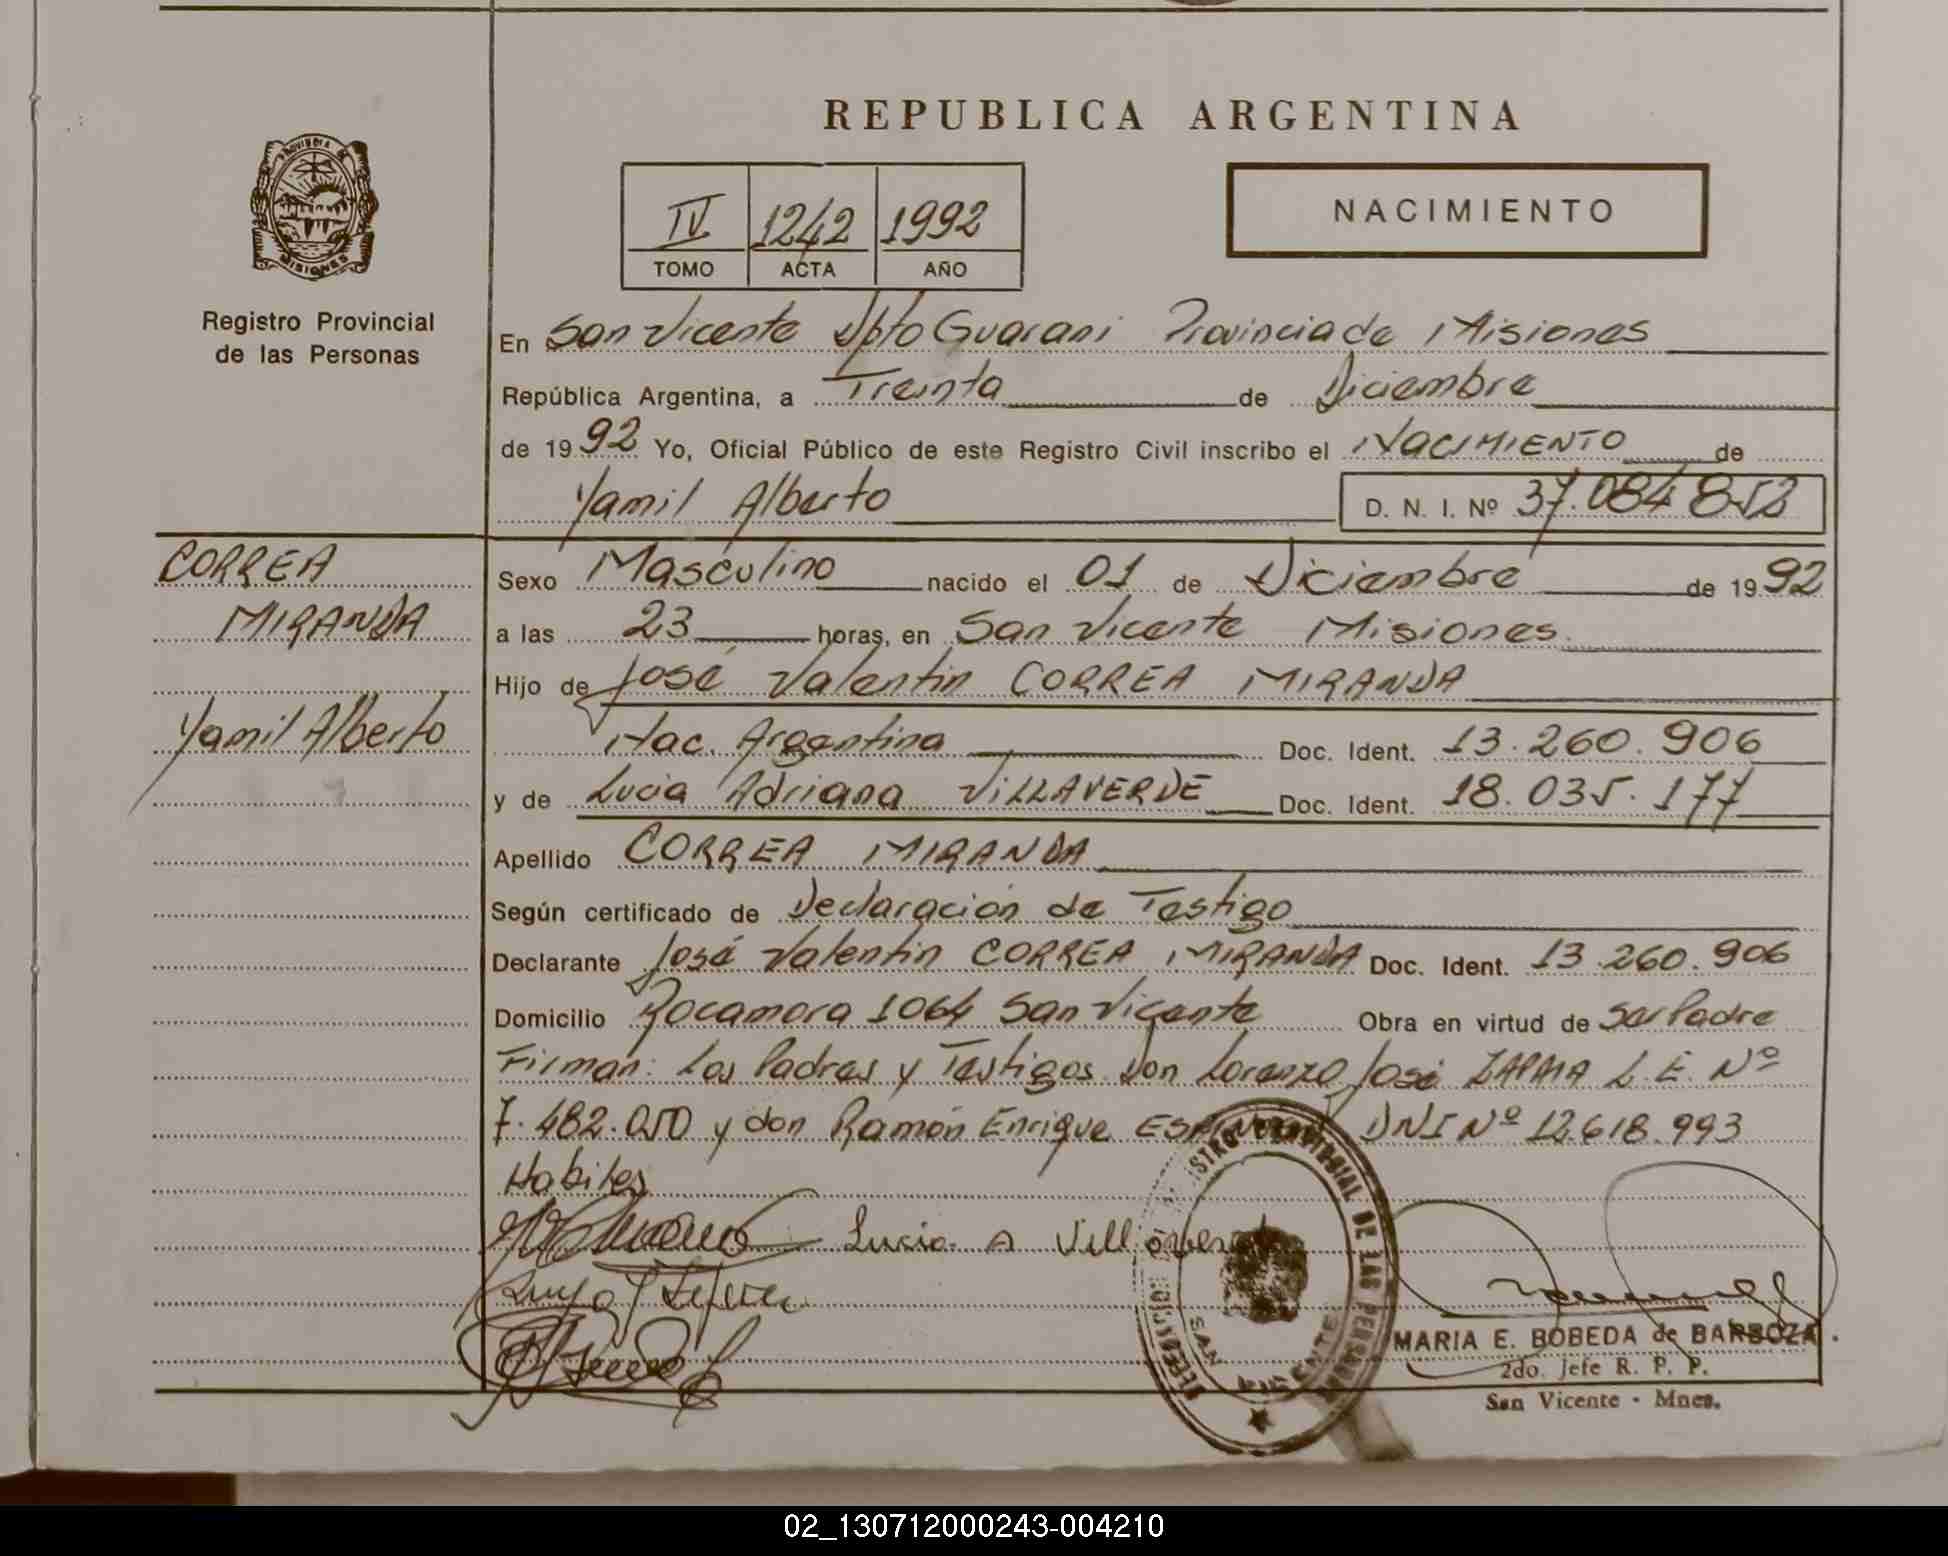 REPUBLICA ARGENTINA
PROVINCIA DE
MISIONES
Registro Provincial
de las Personas
IV 1242 1992
TOMO ACTA AÑO
NACIMIENTO
En San Vicente Dpto Guarani Provincia de Misiones
República Argentina, a Treinta de Diciembre
de 1992 Yo, Oficial Público de este Registro Civil inscribo el NACIMIENTO de
Yamil Alberto D. N. I. Nº 37.084852
CORREA
MIRANDA
Yamil Alberto
Sexo Masculino nacido el 01 de Diciembre de 1992
a las 23 horas, en San Vicente Misiones.
Hijo de José Valentin CORREA MIRANDA
Nac. Argentina Doc. Ident. 13.260.906
y de Lucia Adriana VILLAVERDE Doc. Ident. 18.035.177
Apellido CORREA MIRANDA
Según certificado de Declaración de Testigo
Declarante José Valentin CORREA MIRANDA Doc. Ident. 13.260.906
Domicilio Rocamora 1064 San Vicente Obra en virtud de Ser Padre
Firman: Los Padres y Testigos Don Lorenzo José ZAPATA L.E. Nº
7.482.050 y don Ramón Enrique DNI Nº 12.618.993
Habiles
Lucia A Villaverde
REGISTRO PROVINCIAL DE LAS PERSONAS
SAN VICENTE
MARIA E. BOBEDA de BARBOZA.
2do. Jefe R. P. P.
San Vicente - Mnes.
02_130712000243-004210